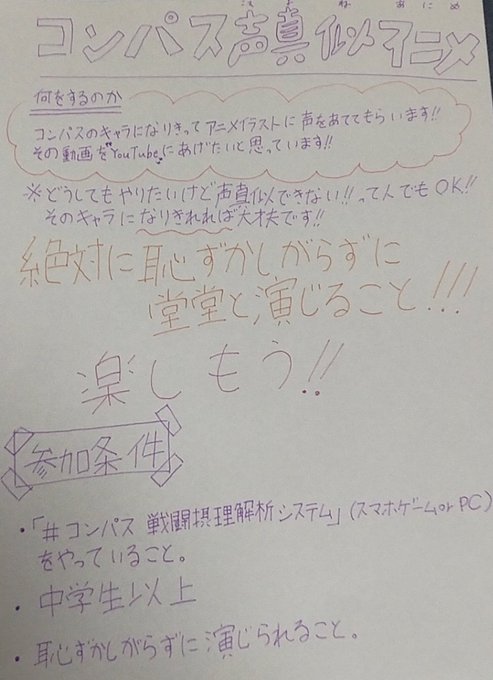 こえまねあにめ
コンパス声真似アニメ
何をするのか
コンパスのキャラになりきってアニメイラストに声をあててもらいます!!
その動画を"YouTube"にあげたいと思っています!!
※どうしてもやりたいけど声真似できない!!って人でもOK!!
そのキャラになりきれれば大丈夫です!!
絶対に恥ずかしがらずに
堂堂と演じること!!!
楽しもう!!
参加条件
・「#コンパス 戦闘摂理解析システム」(スマホゲームor PC)
をやっていること。
・中学生以上
・恥ずかしがらずに演じられること。